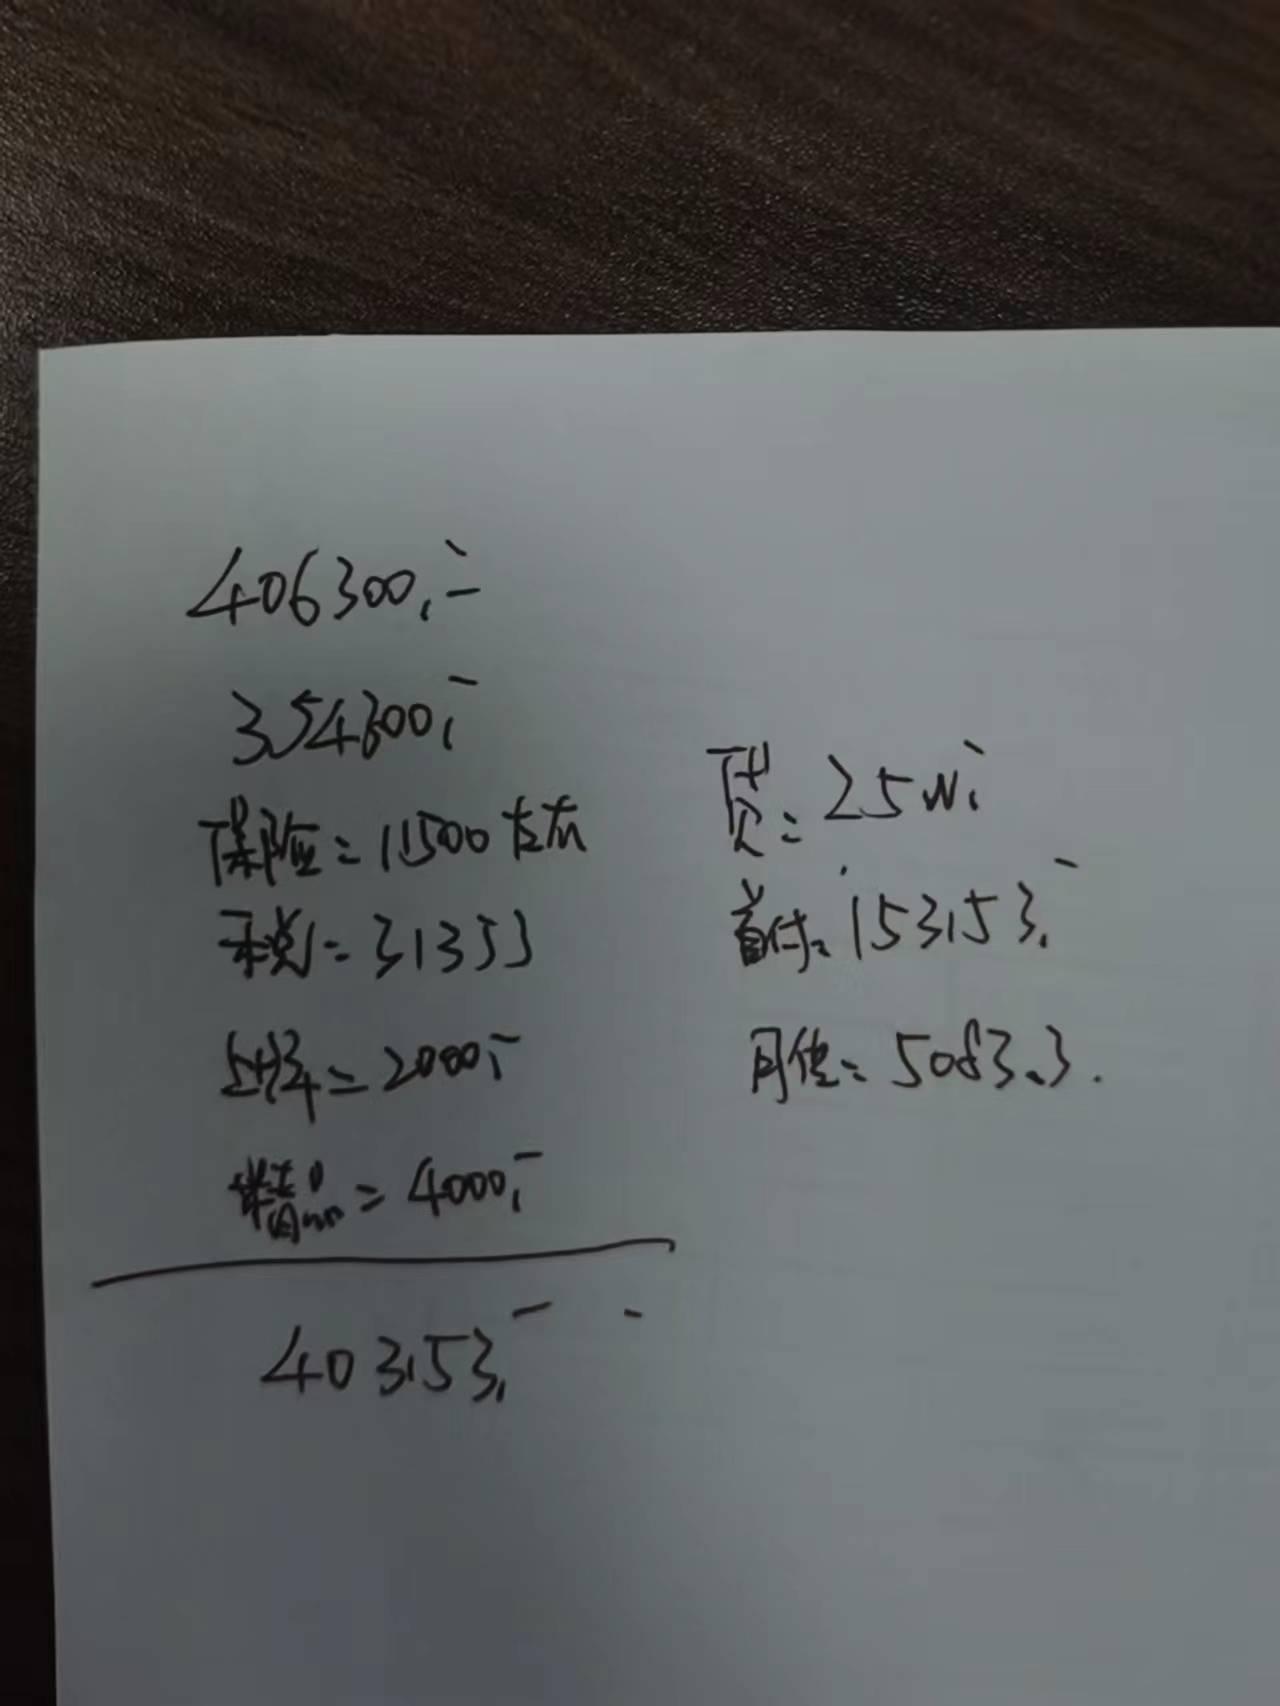 406300.-
354300.-
保险=11500左右
税=31353
上牌=2000.-
精品=4000.-
403153.-
贷=25W.
首付=153153.-
月供=5083.3.